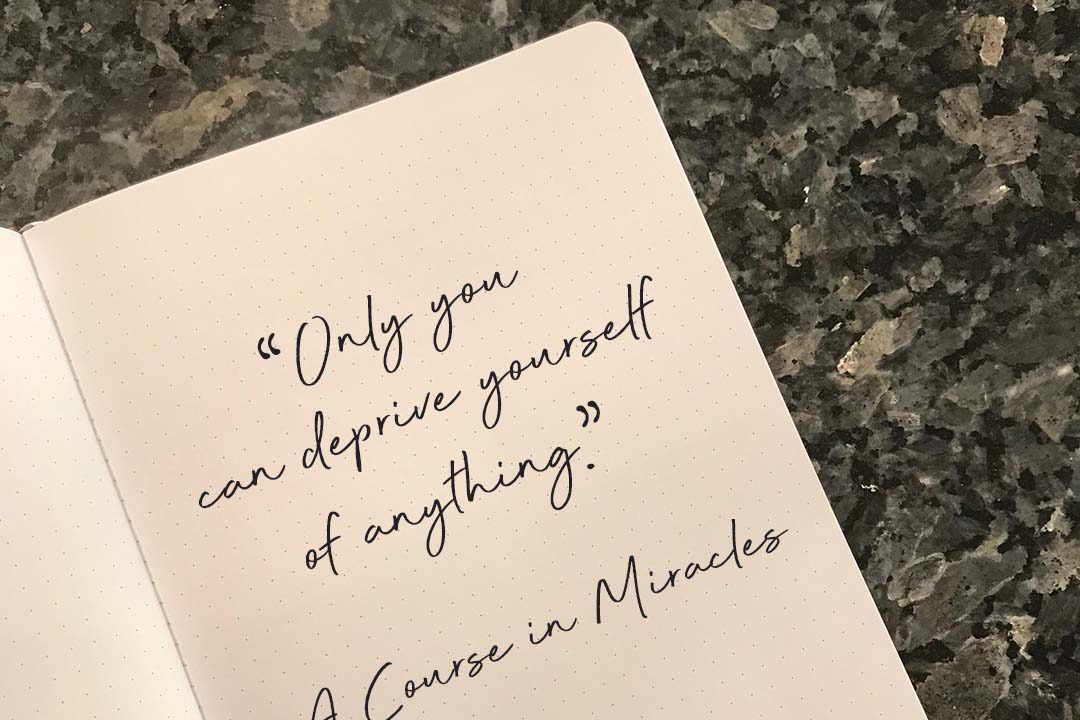 “Only you
can deprive yourself
of anything.”
A Course in Miracles